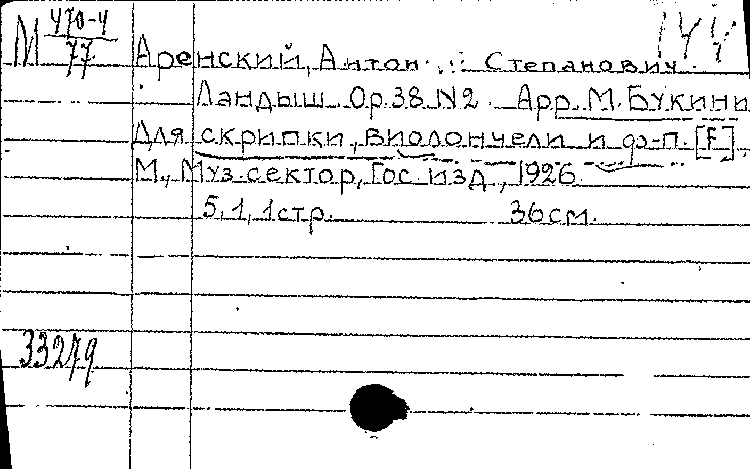 М 470-4
77
144
Аренский, Антон Степанович.
Ландыш Op.38 N2. Арр. М. Букини
Для скрипки, виолончели и ф-п. [F],
М., Муз.сектор, Гос. изд., 1926.
5, 1, 1 стр. 36 см.
33279